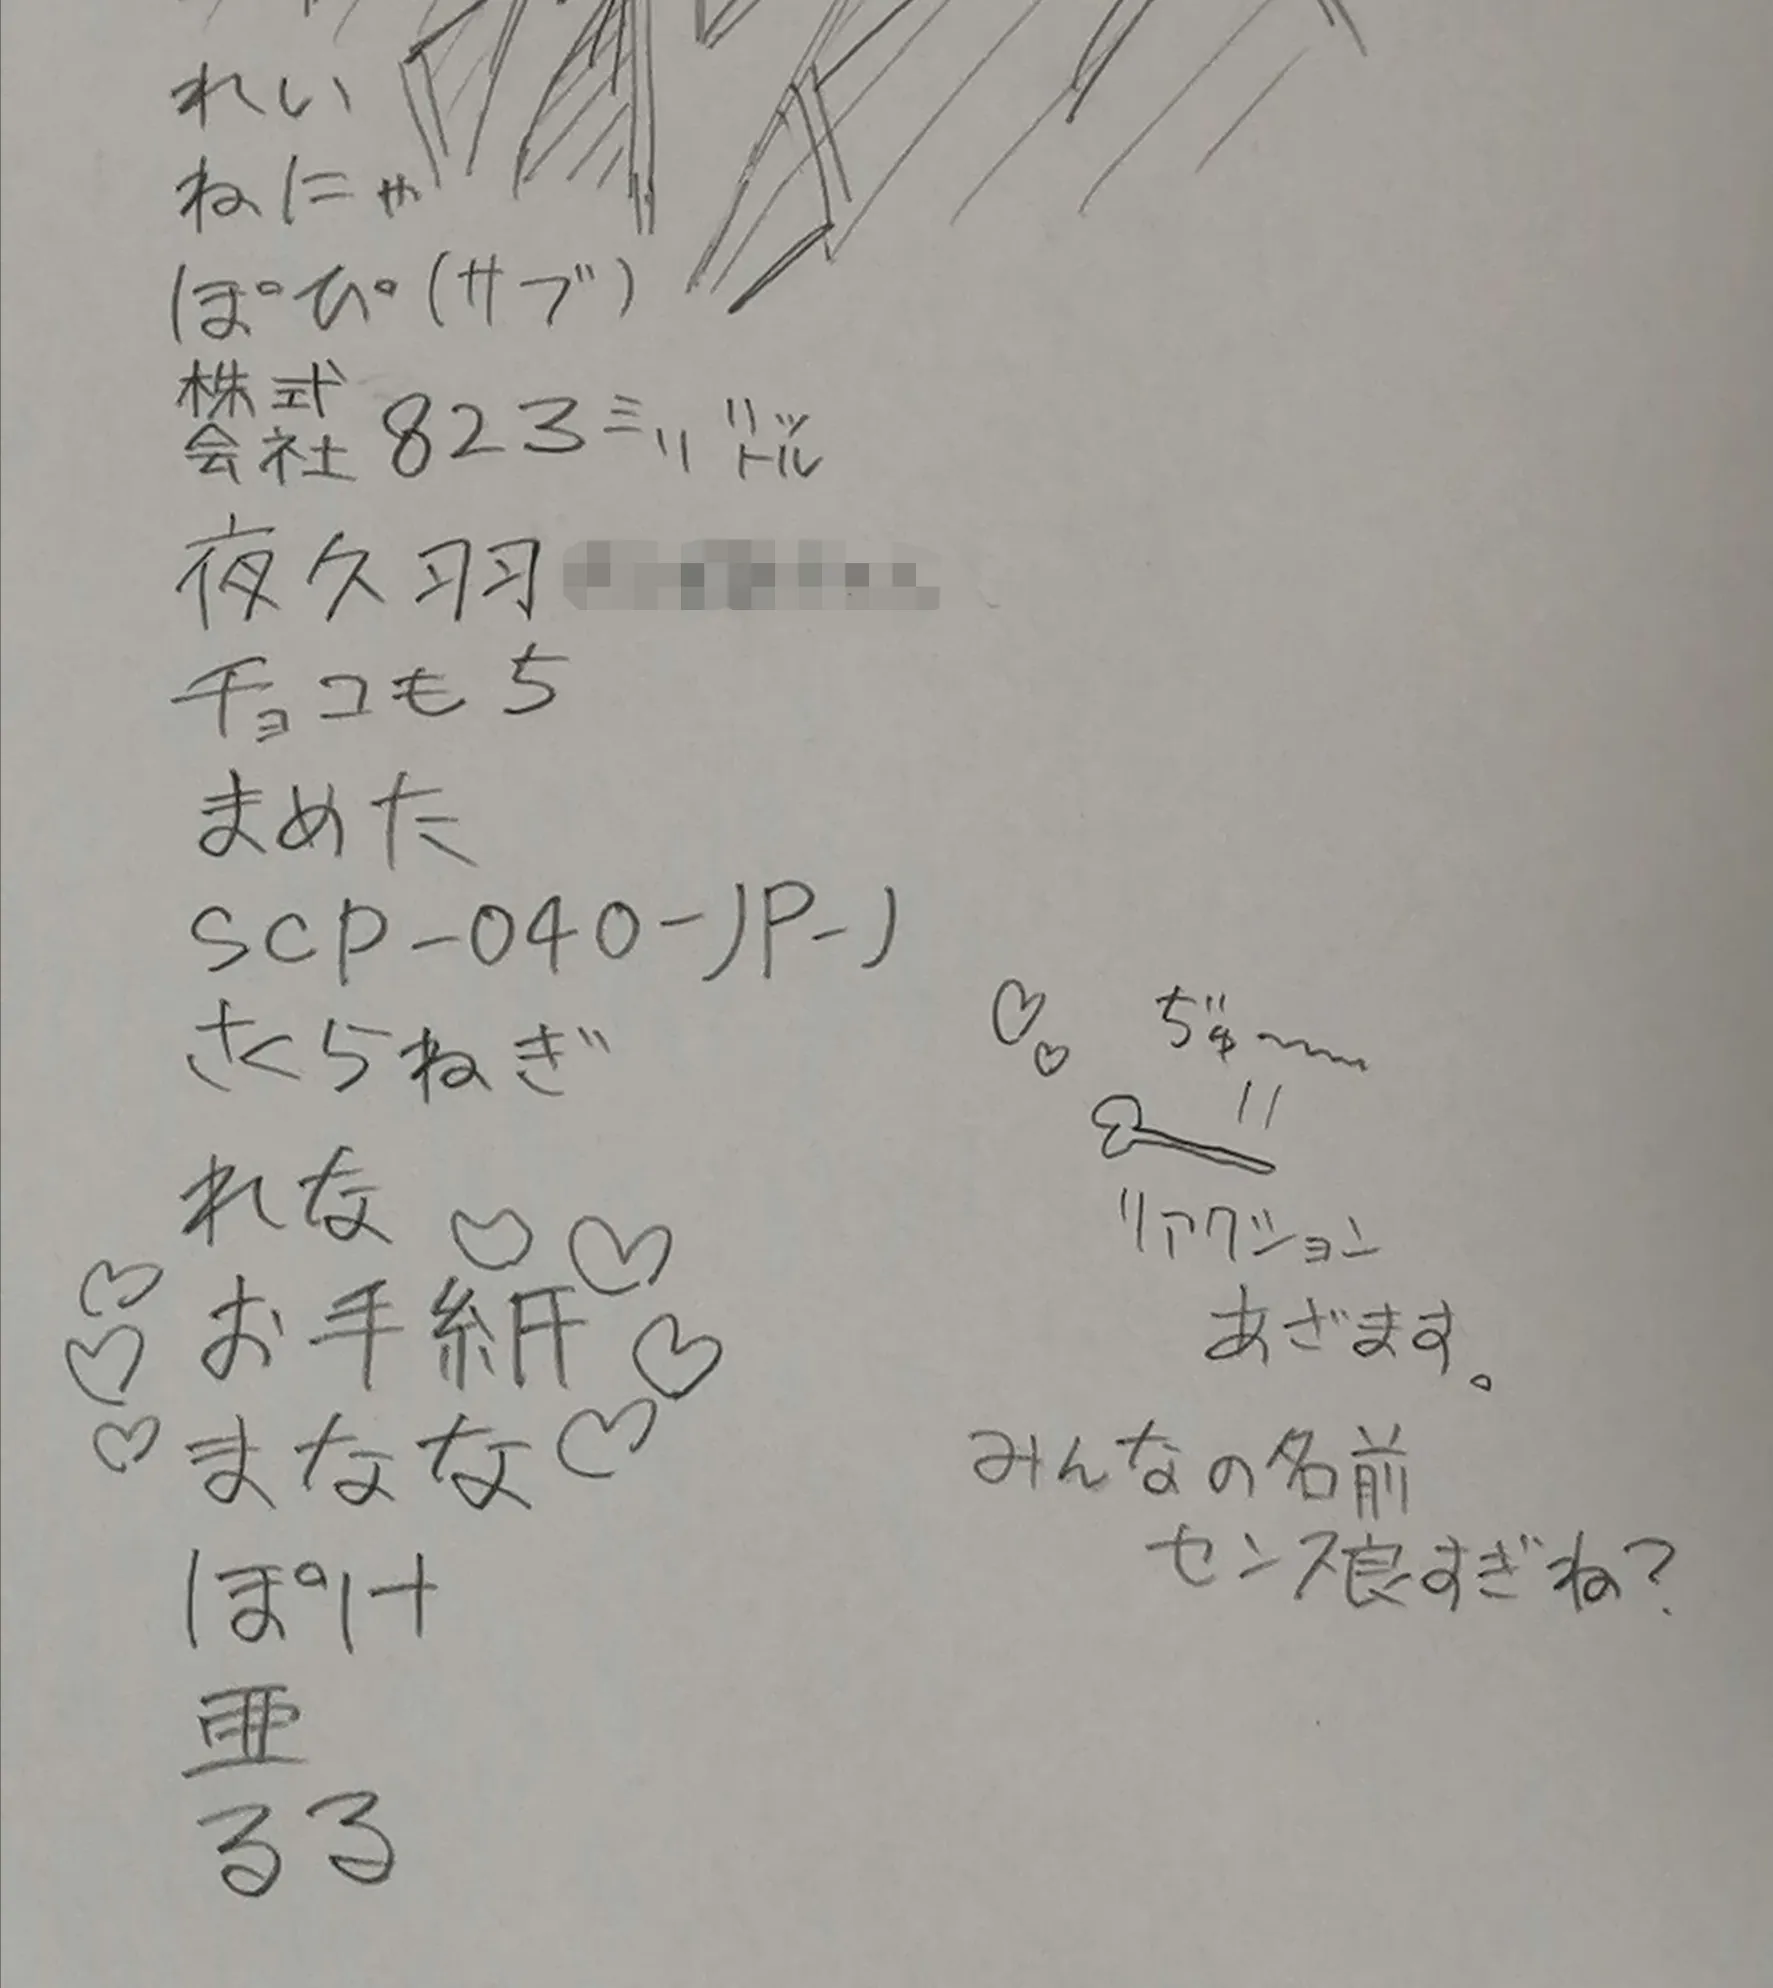 れい
ねにゃ
ぽぴ(サブ)
株式会社823ミリリットル
夜久羽
チョコもち
まめた
SCP-040-JP-J
さくらねぎ
れな
お手紙
まなな
ぽけ
亜
るる
ぢゅ〜
リアクション
あざます。
みんなの名前
センス良すぎね?